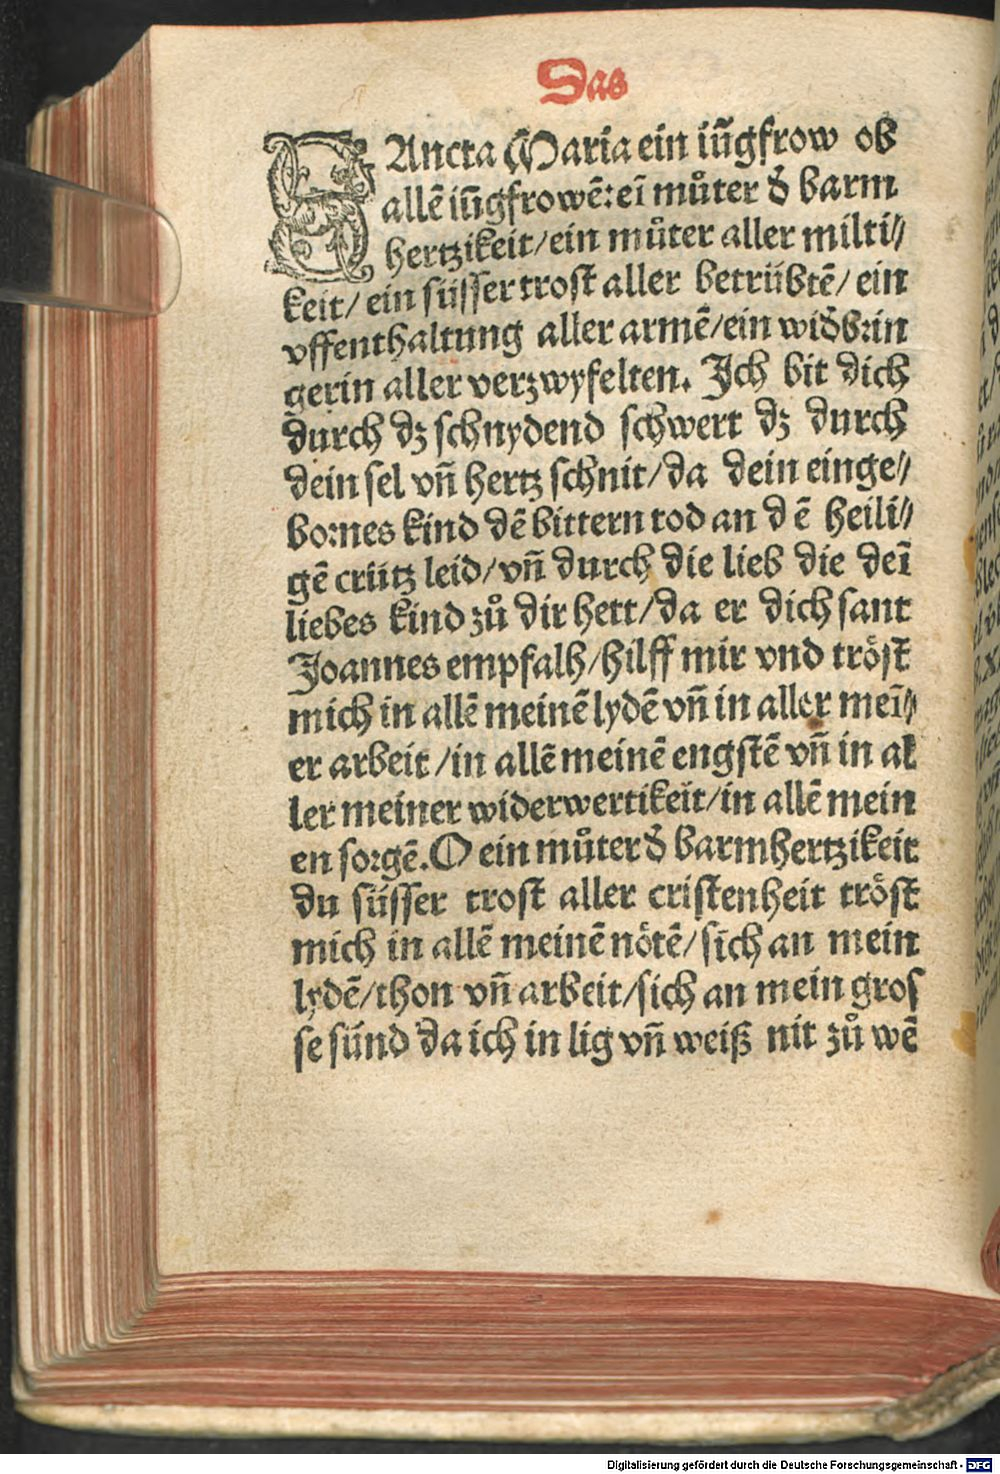 Das
SAncta Maria ein iũgfrow ob
allẽ iũgfrowẽ: eĩ můter d̕ barm
hertzikeit/ ein můter aller milti//
keit/ ein süsser trost aller betrübtẽ/ ein
vffenthaltung aller armẽ/ ein wid̕brin
gerin aller verzwyfelten. Ich bit dich
durch dz schnydend schwert dz durch
dein sel vñ hertz schnit/ da dein einge//
bornes kind dẽ bittern tod an d ẽ heili//
gẽ crütz leid/ vñ durch die lieb die deĩ
liebes kind zů dir hett/ da er dich sant
Joannes empfalh/ hilff mir vnd tröst
mich in allẽ meinẽ lydẽ vñ in aller meĩ//
er arbeit/ in allẽ meinẽ engstẽ vñ in al
ler meiner widerwertikeit/ in allẽ mein
en sorgẽ. O ein můter d̕ barmhertzikeit
du süsser trost aller cristenheit tröst
mich in allẽ meinẽ nötẽ/ sich an mein
lydẽ/ thon vñ arbeit/ sich an mein gros
se sünd da ich in lig vñ weiß nit zů wẽ
Digitalisierung gefördert durch die Deutsche Forschungsgemeinschaft - DFG